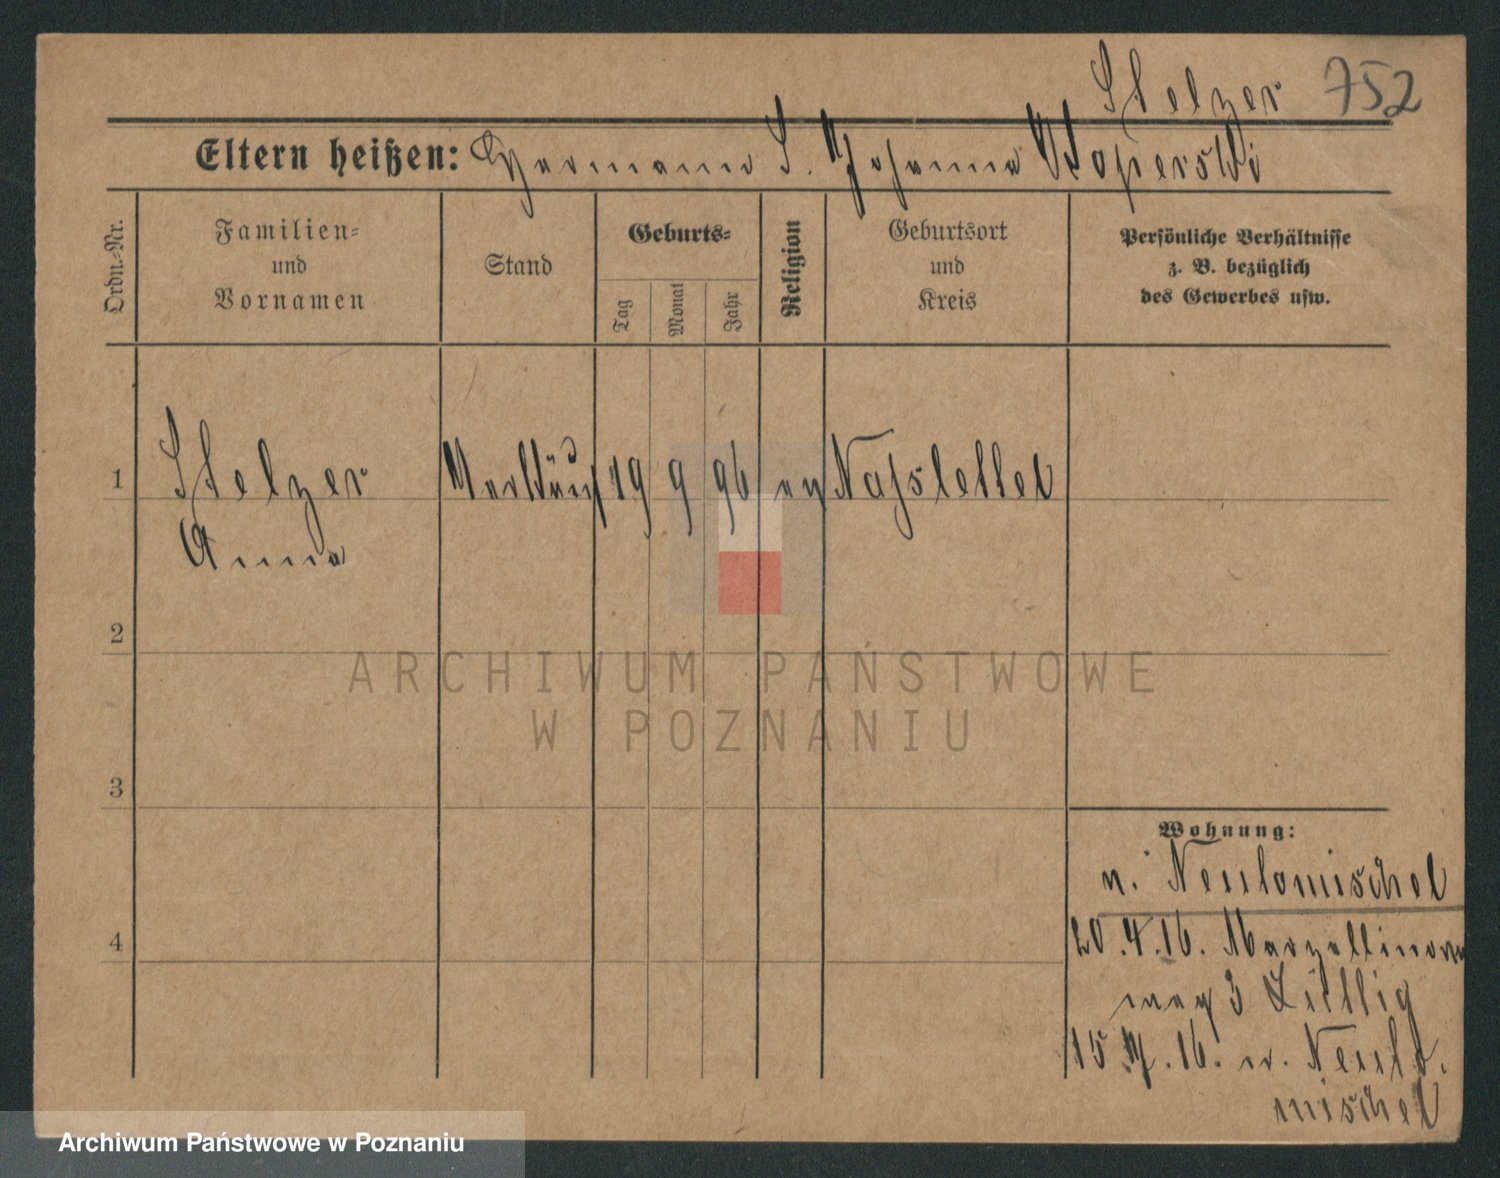 Stelzer 752
Eltern heißen: Hermann S. Johanna Koperski
Ordn.-Nr.
Familien-
und
Vornamen
Stand
Geburts-
Tag
Monat
Jahr
Religion
Geburtsort
und
Kreis
Persönliche Verhältnisse
z. B. bezüglich
des Gewerbes usw.
1 Stelzer 19 9 96 ev
Anna
2
3
4
ARCHIWUM PAŃSTWOWE
W POZNANIU
Wohnung:
n. Neutomischel
20.4.16.
3
15 . 16. n. Neuto-
mischel
Archiwum Państwowe w Poznaniu